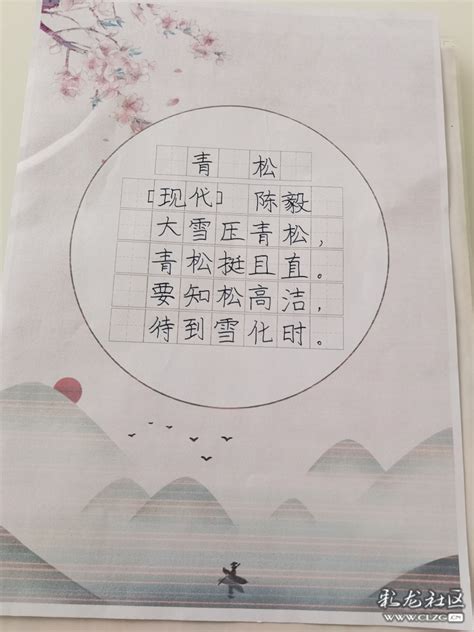 青松
[现代] 陈毅
大雪压青松，
青松挺且直。
要知松高洁，
待到雪化时。
彩龙社区
WWW.CLZG.CN